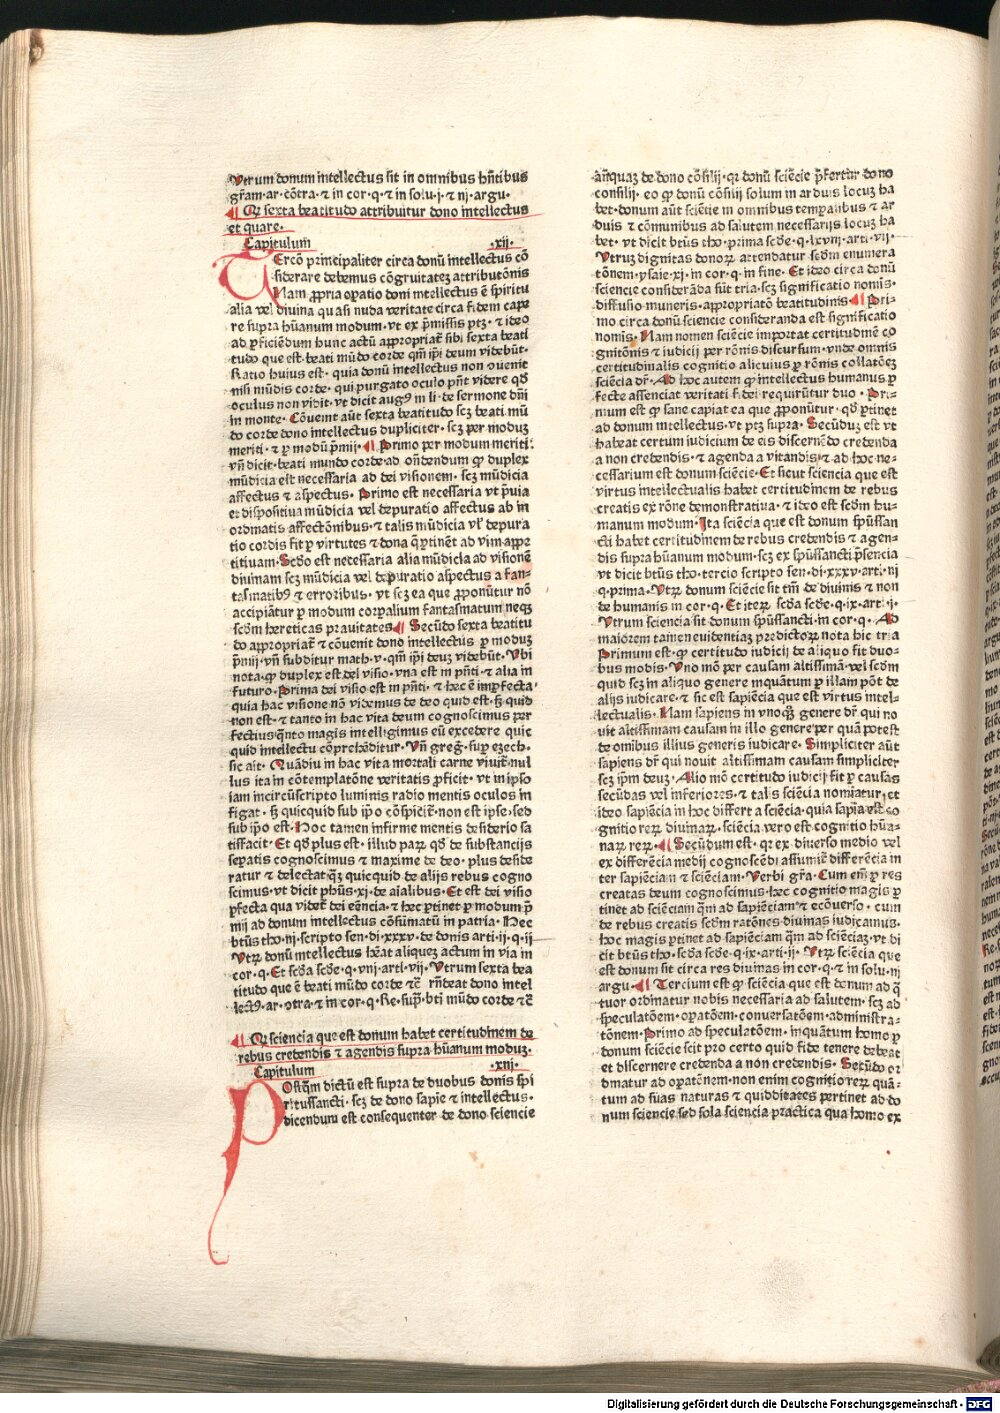 Vtrum donum intellectus sit in omnibus hn̄tibus
gr̄am·ar·cōtra·⁊ in cor·q·⁊ in solu·j·⁊ nj·argu·
¶ Qꝫ sexta beatitudo attribuitur dono intellectus
et quare·
Capitulum ·xij·
TErcō principaliter circa donū intellectus cō
siderare debemus cōgruitatez attributōnis
Nam ꝓpria oꝑatio doni intellectus ē spiritu
alia vel diuina quasi nuda veritate circa fidem cape
re supra hūanum modum·vt ex p̄missis ptꝫ·⁊ ideo
ad ꝑficiēdum hunc actū appropriat᷑ sibi sexta beati
tudo que est·beati mūdo corde qm̄ ip̄i deum videbūt·
Ratio huius est·quia donū intellectus non ꝯuenit
nisi mūdis corde·qui purgato oculo pn̄t videre qd̄
oculus non vidit·vt dicit augꝰ in li·de sermone dn̄i
in monte·Cōueint aūt sexta beatitudo scꝫ beati mū
do corde dono intellectus dupliciter·scꝫ per moduz
meriti·⁊ ꝑ modū p̄mij·¶ Primo per modum meriti·
vn̄ dicit·beati mundo corde·ad on̄dendum ꝙ duplex
mūdicia est necessaria ad dei visionem·scꝫ mūdicia
affectus ⁊ aspectus·Primo est necessaria vt p̄uia
et dispositiua mūdicia vel depuratio affectus ab in
ordinatis affectōnibus·⁊ talis mūdicia vl̄ depura
tio cordis fit ꝑ virtutes ⁊ dona q̄ ꝑtinēt ad vim appe
titiuam·Scd̄o est necessaria alia mūdicia ad visionē
diuinam scꝫ mūdicia vel depuratio aspectus a fan-
tasmatibꝰ ⁊ erroribus·vt scꝫ ea que ꝓponūtur nō
accipiātur ꝑ modum corꝑalium fantasmatum neqꝫ
scd̄m hereticas prauitates¶ Secūdo sexta beatitu
do appropriat᷑ ⁊ cōuenit dono intellectus ꝑ moduz
p̄mij·vn̄ subditur math·v·qm̄ ip̄i deuz videbūt·Vbi
nota·ꝙ duplex est dei visio·vna est in pn̄ti·⁊ alia in
futuro·Prima dei visio est in pn̄ti·⁊ hec ē imꝑfecta·
quia hac visione nō videmus de deo quid est·sꝫ quid
non est·⁊ tanto in hac vita deum cognoscimus per
fectius q̄nto magis intelligimus eū excedere quic
quid intellectu cōprehēditur·Vn̄ greg̃·suꝑ ezech·
sic ait·Quādiu in hac vita mortali carne viuit᷑·nul
lus ita in cōtemplatōne veritatis ꝓficit·vt in ipso
iam incircūscripto luminis radio mentis oculos in
figat·sꝫ quicquid sub ip̄o cōspicit᷑·non est ipse·sed
sub ip̄o est·Hoc tamen infirme mentis desiderio sa
tisfacit·Et qd̄ plus est·illud paꝝ qd̄ de substancijs
seꝑatis cognoscimus ⁊ maxime de deo·plus deside
ratur ⁊ delectat᷑·qꝫ quicquid de alijs rebus cogno
scimus·vt dicit phūs·xj·de aīalibus·Et est dei visio
ꝑfecta qua videt᷑ dei eēncia·⁊ hec ꝑtinet ꝑ modum p̄
mij ad donum intellectus cōsūmatū in patria·Hec
btūs tho·nj·scripto sen·di·xxxv·de donis arti·ij·q·ij
Vtꝝ donū intellectus hēat aliquez actum in via in
cor·q·Et scd̄a scd̄e·q·vnj·arti·vij·Vtrum sexta bea
titudo que ē beati mūdo corde ⁊c̄ rn̄deat dono intel
lectꝰ·ar·ꝯtra·⁊ in cor·q·Re·suꝑ·bti mūdo corde ⁊c̄
¶ Qꝫ sciencia que est donum habet certitudinem de
rebus credendis ⁊ agendis supra hūanum moduz·
Capitulum ·xnj·
POstq̄m dictū est supra de duobus donis spi
ritussancti·scꝫ de dono sapīe ⁊ intellectus·
dicendum est consequenter de dono sciencie
an̄quaꝫ de dono cōsilij·qꝛ donū sciēcie p̄fertur dono
consilij·eo ꝙ donū cōsilij solum in arduis locuz ha
bet·donum aūt sciētie in omnibus temꝑalibus ⁊ ar
duis ⁊ cōmunibus ad salutem necessarijs locuz ha
bet·vt dicit btūs tho·prima scd̄e·q·lxvnj·arti·vij·
Vtruz dignitas donoꝝ attendatur scd̄m enumera
tōnem·ysaie·xj·in cor·q·in fine·Et ideo circa donū
sciencie considerāda sūt tria·scꝫ significatio nomīs·
diffusio muneris·appropriatō beatitudinis ¶ Pri-
mo circa donū sciencie consideranda est significatio
nomis·Nam nomen sciēcie importat certitudinē co
gnitōnis ⁊ iudicij per rōnis discursum·vnde omnis
certitudinalis cognitio alicuius ꝑ rōnis collatōeꝫ
sciēcia dr̄·Ad hoc autem ꝙ intellectus humanus ꝑ
fecte assenciat veritati fidei requirūtur duo·Pri-
mum est ꝙ sane capiat ea que ꝓponūtur·qd̄ ꝑtinet
ad donum intellectus·vt ptꝫ supra·Secūduꝫ est vt
habeat certum iudicium de eis discernēdo credenda
a non credendis·⁊ agenda a vitandis·⁊ ad hoc ne-
cessarium est donum sciēcie·Et sicut sciencia que est
virtus intellectualis habet certitudinem de rebus
creatis ex rōne demonstratiua·⁊ ideo est scd̄m hu-
manum modum·Ita sciēcia que est donum sp̄ussan
cti habet certitudinem de rebus credendis ⁊ agen-
dis supra hūanum modum·scꝫ ex sp̄ussancti p̄sencia
vt dicit btūs tho·tercio scripto sen·di·xxxv·arti·nj
q·prima·Vtꝝ donum sciēcie sit tm̄ de diuinis ⁊ non
de humanis in cor·q·Et iteꝝ scd̄a scd̄e·q·ix·arti·j·
Vtrum sciencia sit donum sp̄ussancti·in cor·q·Ad
maiorem tamen euidentiaꝫ predictoꝝ nota hic tria
Primum est·ꝙ certitudo iudicij de aliquo fit duo-
bus modis·Vno mō per causam altissimā·vel scd̄m
quid scꝫ in aliquo genere inquātum ꝑ illam pōt de
alijs iudicare·⁊ sic est sapiēcia que est virtus intel-
lectualis·Nam sapiens in vnoqꝫ genere dr̄ qui no
uit altissimam causam in illo genere·per quā potest
de omnibus illius generis iudicare·Simpliciter aūt
sapiens dr̄ qui nouit altissimam causam simpliciter
scꝫ ip̄m deuꝫ·Alio mō certitudo iudicij fit ꝑ causas
secūdas vel inferiores·⁊ talis sciēcia nominatur·et
ideo sapiēcia in hoc differt a sciēcia·quia sapīa est co
gnitio reꝝ diuinaꝝ·sciēcia vero est cognitio hūa-
naꝝ reꝝ·¶ Secūdum est·qꝛ ex diuerso medio vel
ex differēcia medij cognoscēdi assumit᷑ differēcia in
ter sapiēciam ⁊ sciēciam·Verbi gr̄a·Cum em̄ ꝑ res
creatas deum cognoscimus·hec cognitio magis ꝑ
tinet ad sciēciam q̄m ad sapiēciam·⁊ ecōuerso·cum
de rebus creatis scd̄m ratōnes diuinas iudicamus·
hoc magis ꝑtinet ad sapiēciam q̄m ad sciēciaꝫ·vt di
cit btūs tho·scd̄a scd̄e·q·ix·arti·ij·Vtꝝ sciēcia que
est donum sit circa res diuinas in cor·q·⁊ in solu·nj
argu·¶ Tercium est ꝙ sciēcia que est donum ad q̄
tuor ordinatur nobis necessaria ad salutem·scꝫ ad
speculatōem·oꝑatōem·conuersatōem·administra-
tōnem·Primo ad speculatōem·inquātum homo ꝑ
donum sciēcie scit pro certo quid fide tenere debeat
et discernere credenda a non credendis·Secūdo or
dinatur ad oꝑatōnem·non enim cognitio reꝝ quā-
tum ad suas naturas ⁊ quidditates pertinet ad do
num sciencie sed sola sciencia practica qua homo ex
Digitalisierung gefördert durch die Deutsche Forschungsgemeinschaft · DFG